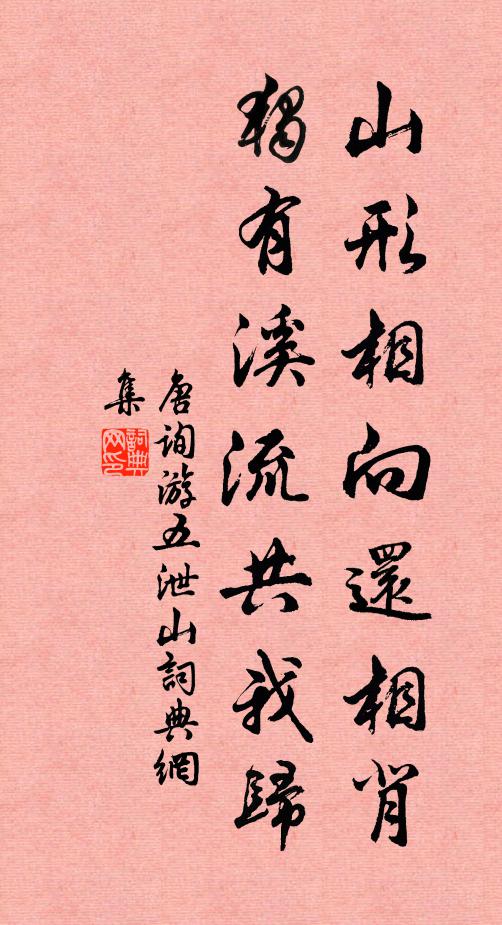 山形相向還相背
獨有溪流共我歸
唐詢游五泄山詞典網
集
詞典网印